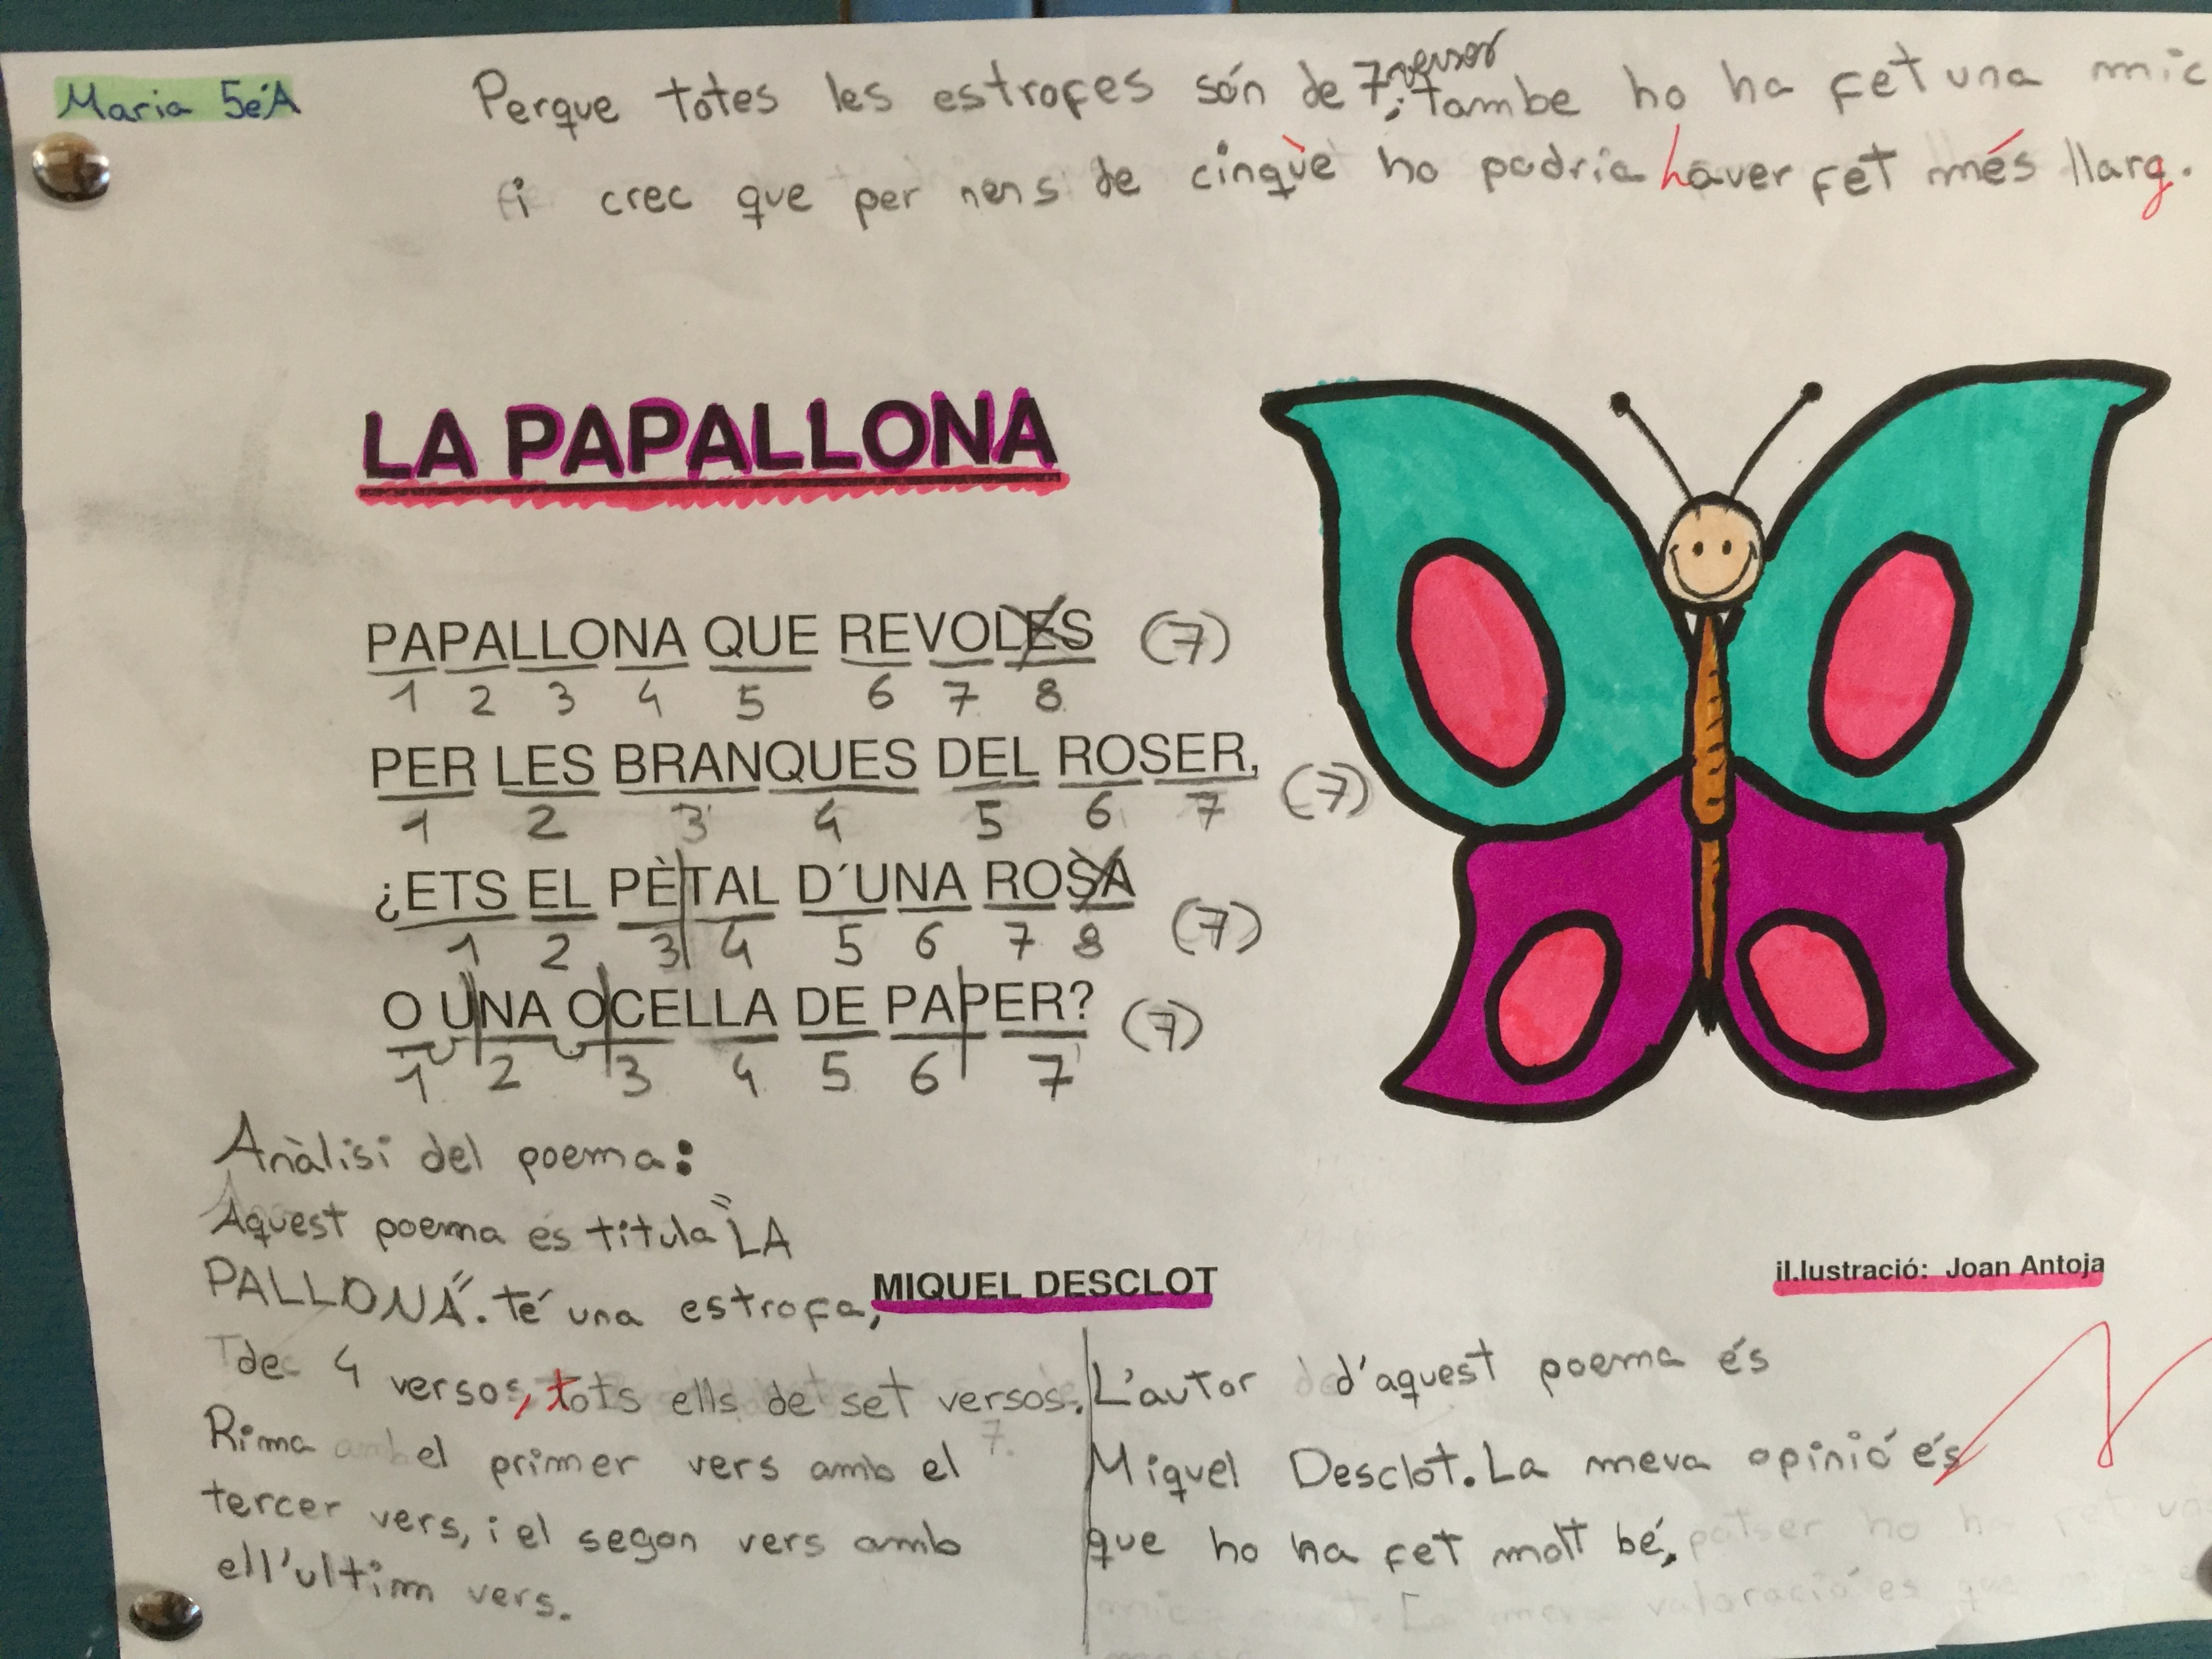 Maria 5èA
Perque totes les estrofes són de 7 versos, tambe ho ha fet una mic
i crec que per nens de cinquè ho podria haver fet més llarg.
LA PAPALLONA
PAPALLONA QUE REVOLES (7)
1 2 3 4 5 6 7 8
PER LES BRANQUES DEL ROSER, (7)
1 2 3 4 5 6 7
¿ETS EL PÈTAL D´UNA ROSA (7)
1 2 3 4 5 6 7 8
O UNA OCELLA DE PAPER? (7)
1 2 3 4 5 6 7
Anàlisi del poema:
Aquest poema és titula "LA
PALLONA". té una estrofa,
de 4 versos, tots ells de set versos.
Rima el primer vers amb el
tercer vers, i el segon vers amb
ell'ultim vers.
MIQUEL DESCLOT
il.lustració: Joan Antoja
L'autor d'aquest poema és
Miquel Desclot. La meva opinió és
que ho ha fet molt bé,